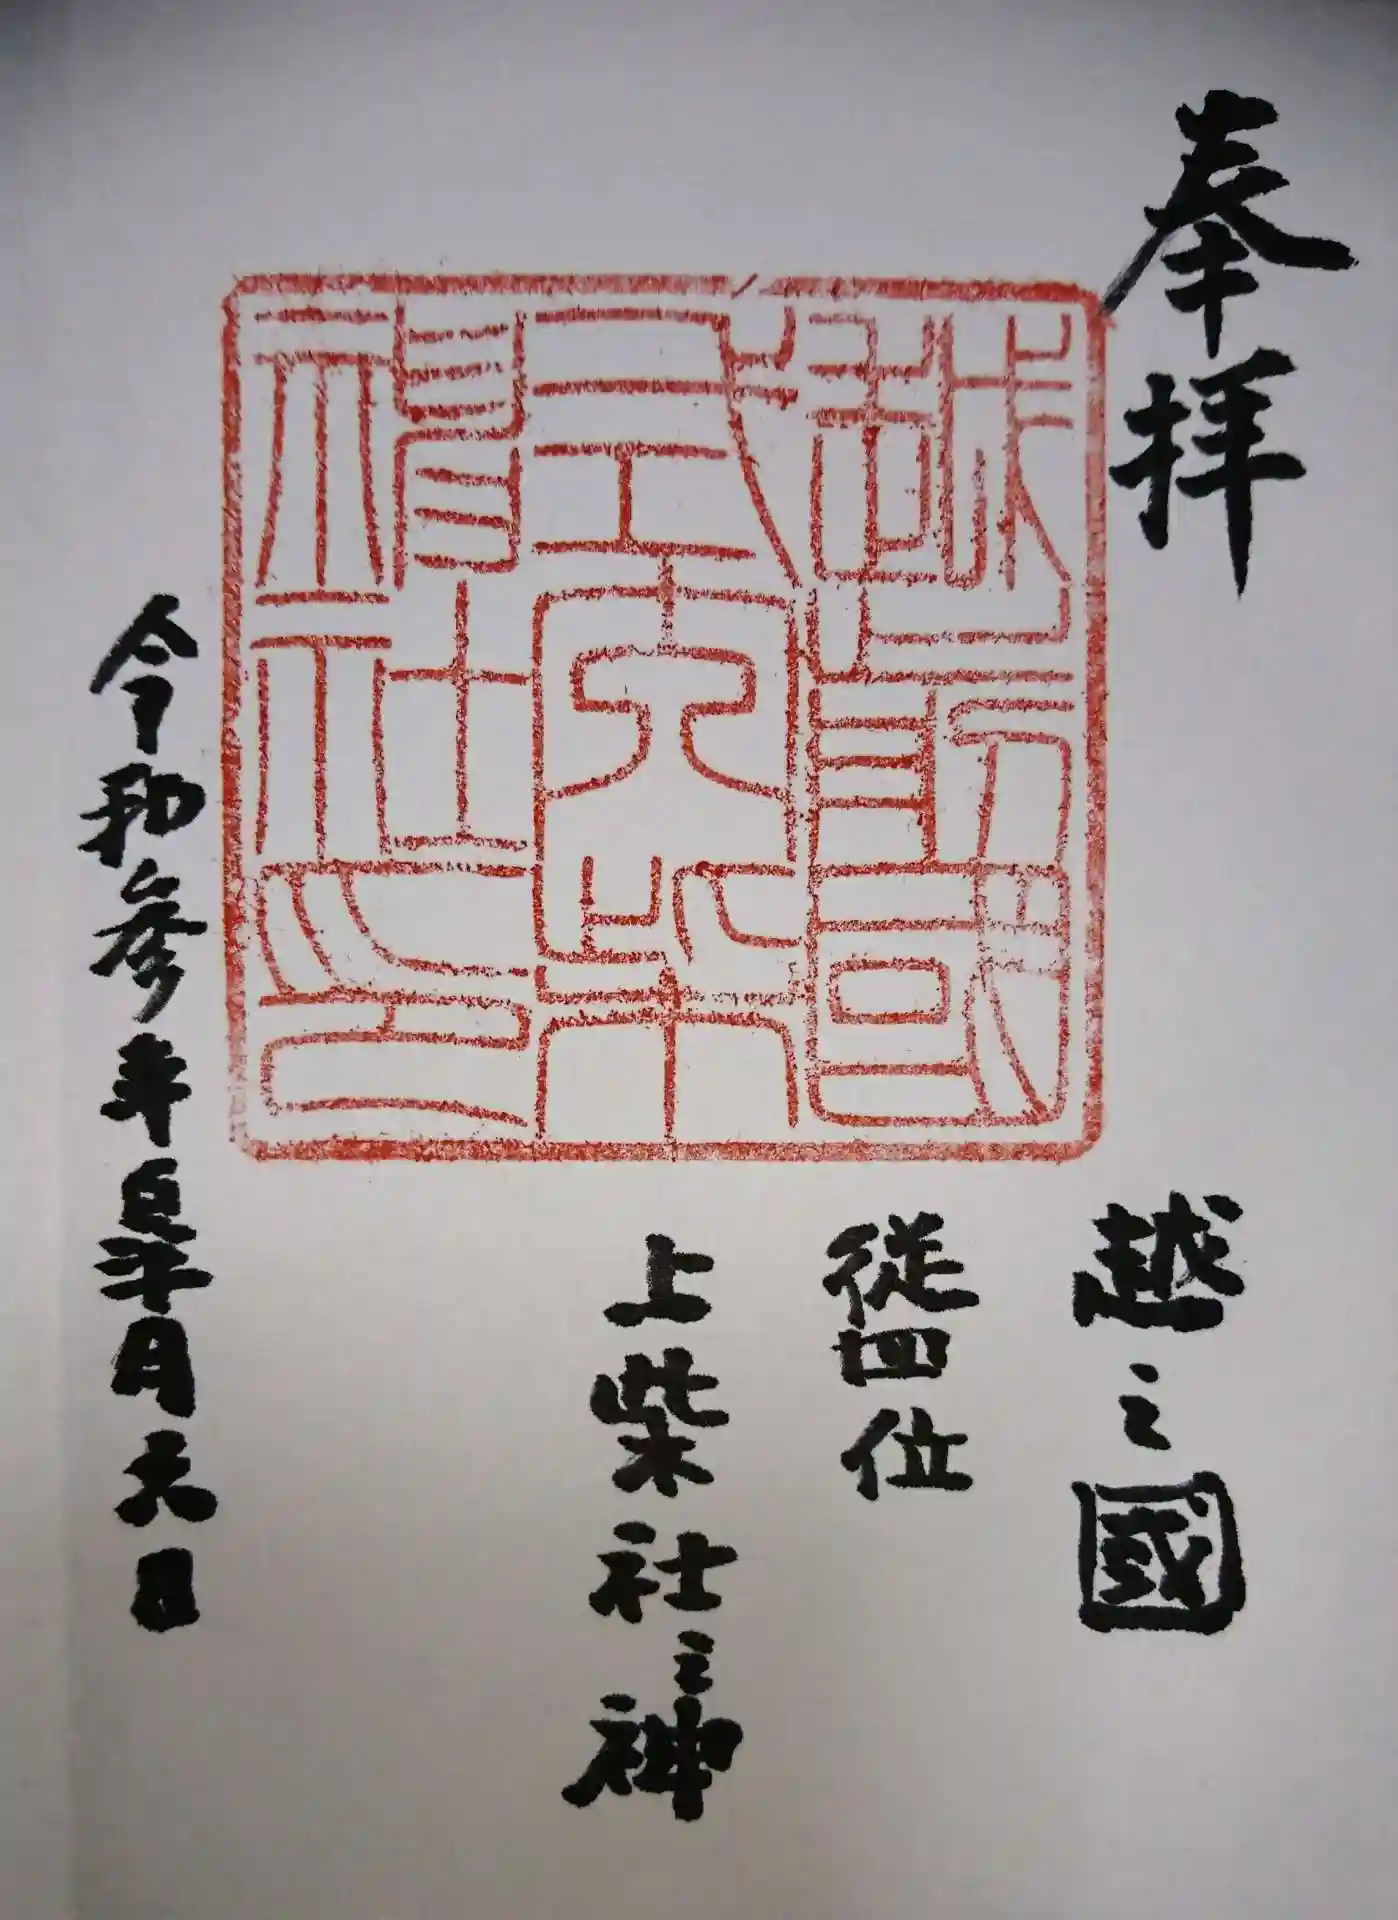 奉拝
越之國
従四位
上柴社之神
越前國
式内柴
神社之印
令和参年皐月六日